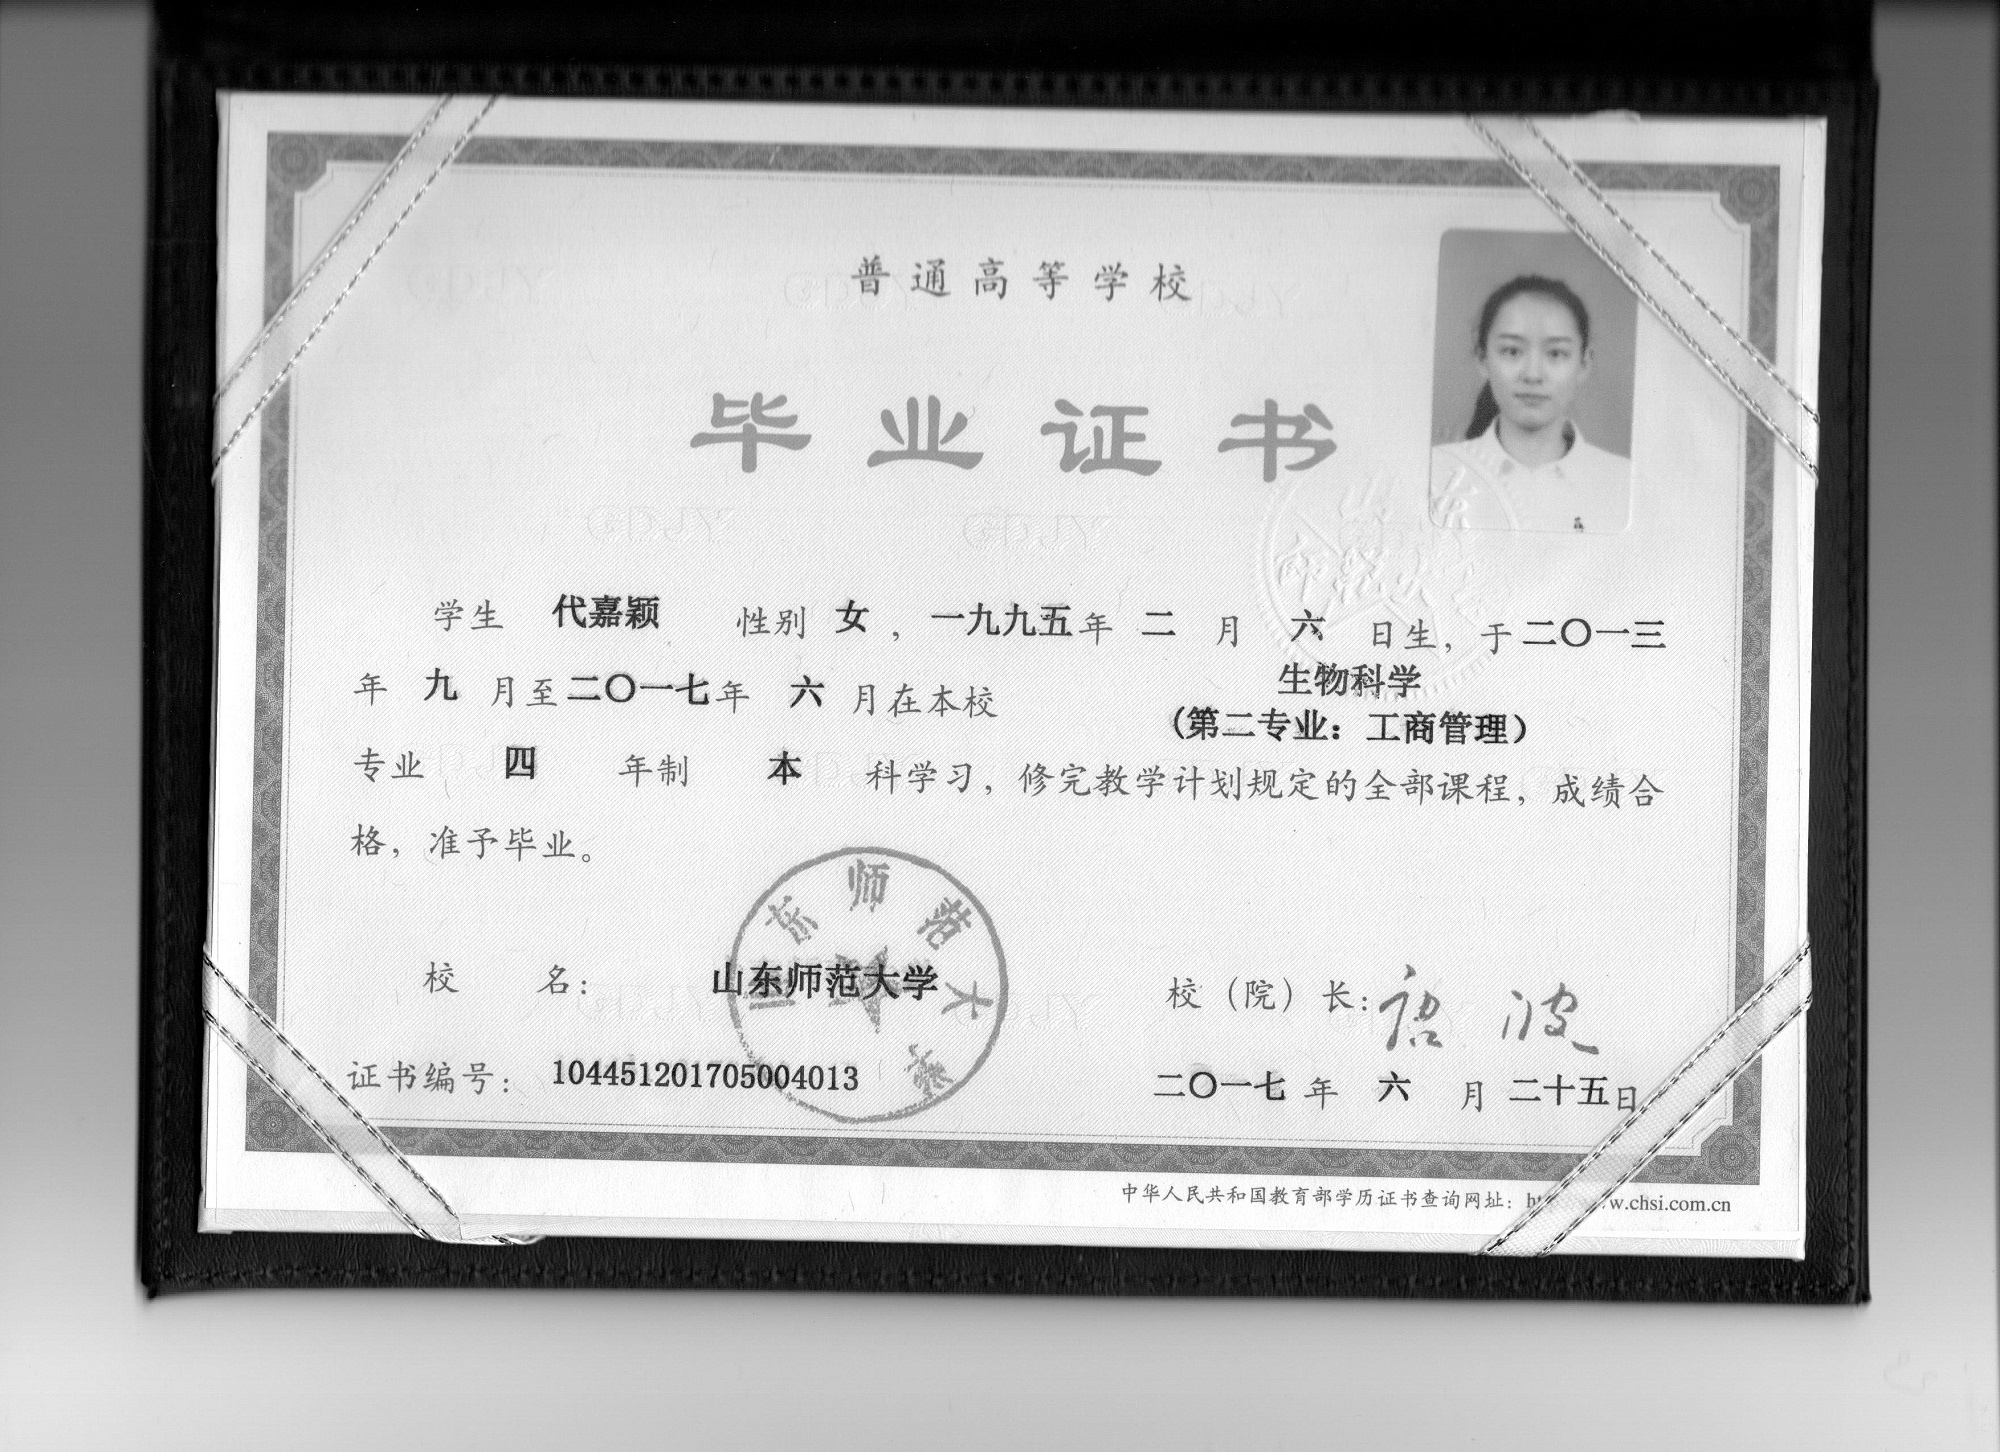 普通高等学校
毕业证书
学生 代嘉颖 性别 女 ，一九九五年 二 月 六 日生，于二〇一三
年 九 月至二〇一七年 六 月在本校 生物科学
(第二专业：工商管理)
专业 四 年制 本 科学习，修完教学计划规定的全部课程，成绩合
格，准予毕业。
山东师范大学
校 名： 山东师范大学
校（院）长：
证书编号： 104451201705004013
二〇一七 年 六 月 二十五日
中华人民共和国教育部学历证书查询网址： w.chsi.com.cn